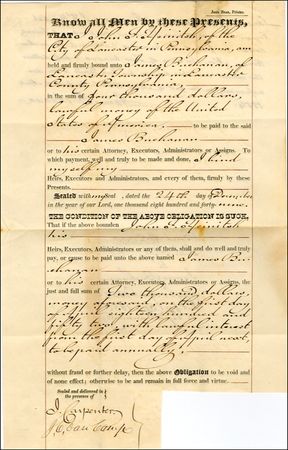 John Bear, Printer.
Know all Men by these Presents,
THAT I John F. Heinitsh, of the
City of Lancaster in Pennsylvania, am
held and firmly bound unto James Buchanan, of
Lancaster Township in Lancaster
County Pennsylvania,
in the sum of four thousand dollars
lawful money of the United
States of America. to be paid to the said
James Buchanan
or to his certain Attorney, Executors, Administrators or Assigns. To
which payment, well and truly to be made and done, I bind
myself my
Heirs, Executors and Administrators, and every of them, firmly by these
Presents.
Sealed with my seal, dated the 24th day December
in the year of our Lord, one thousand eight hundred and forty nine
THE CONDITION OF THE ABOVE OBLIGATION IS SUCH,
That if the above bounden John F. Heinitsh
his
Heirs, Executors, Administrators or any of them, shall and do well and truly
pay, or cause to be paid unto the above named James Bu-
chanan
or to his certain Attorney, Executors, Administrators or Assigns, the
just and full sum of Two thousand dollars
money aforesaid, on the first day
of April eighteen hundred and
fifty two, with lawful interest
from the first day of April next,
to be paid annually,
without fraud or further delay, then the above Obligation to be void and
of none effect; otherwise to be and remain in full force and virtue.
Sealed and delivered in
the presence of
J. Carpenter
J. C. Van Camp